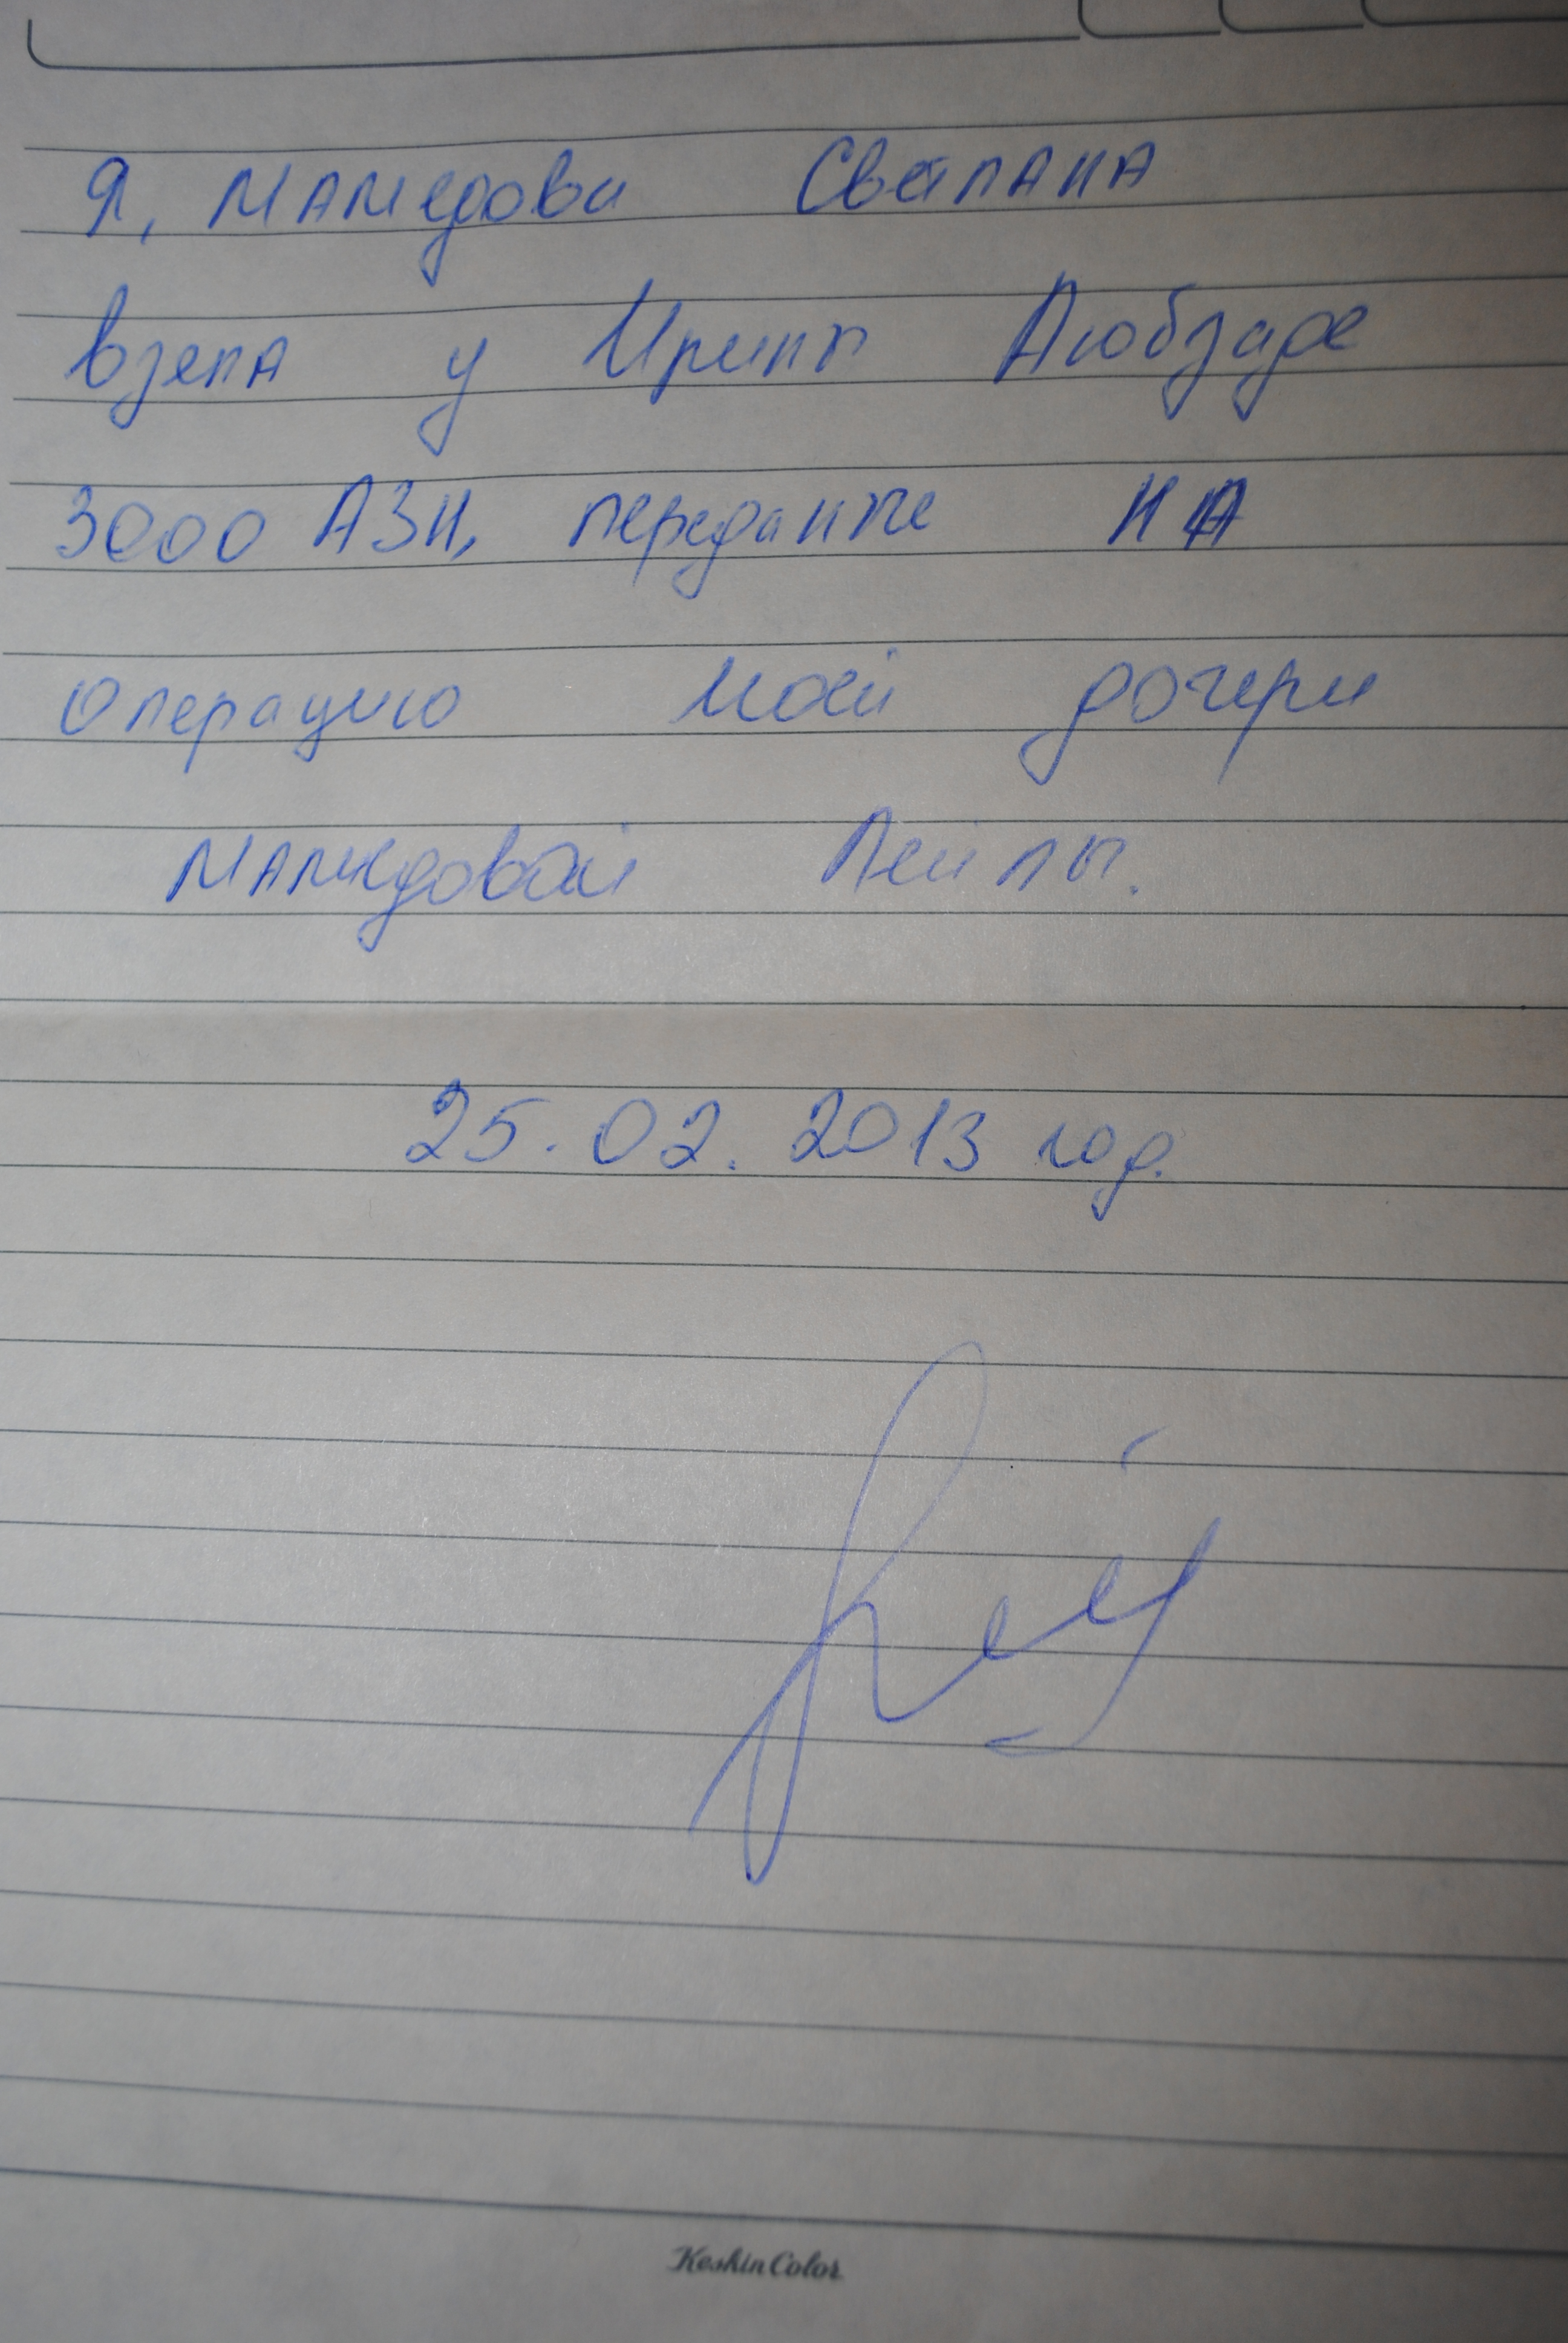 Я, Мамедова Светлана
взела у Ирины Аюбзаде
3000 АЗН, переданые на
операцию моей дочери
Мамедовой Лейлы.
25.02.2013 год.
Keskin Color